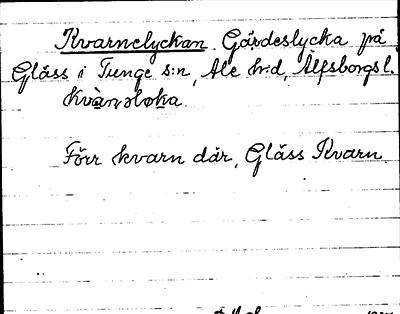 Kvarnelyckan Gärdeslycka på
Gläss i Tunge s:n, Ale h:d, Älfsborgs l.
Förr kvarn där, Gläss Kvarn.